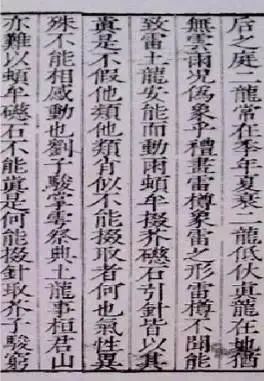 后之庭二龍常在季年夏衰二龍低伏眞龍在地猶
無雲雨况偽象乎禮畫雷樽象雷之形雷樽不聞能
致雷土龍安能而動雨頓牟掇芥磁石引針皆以其
眞是不假他類他類肖似不能掇取者何也氣性異
殊不能相感動也劉子駿掌雩祭典土龍事桓君山
亦難以頓牟磁石不能眞是何能掇針取芥子駿窮